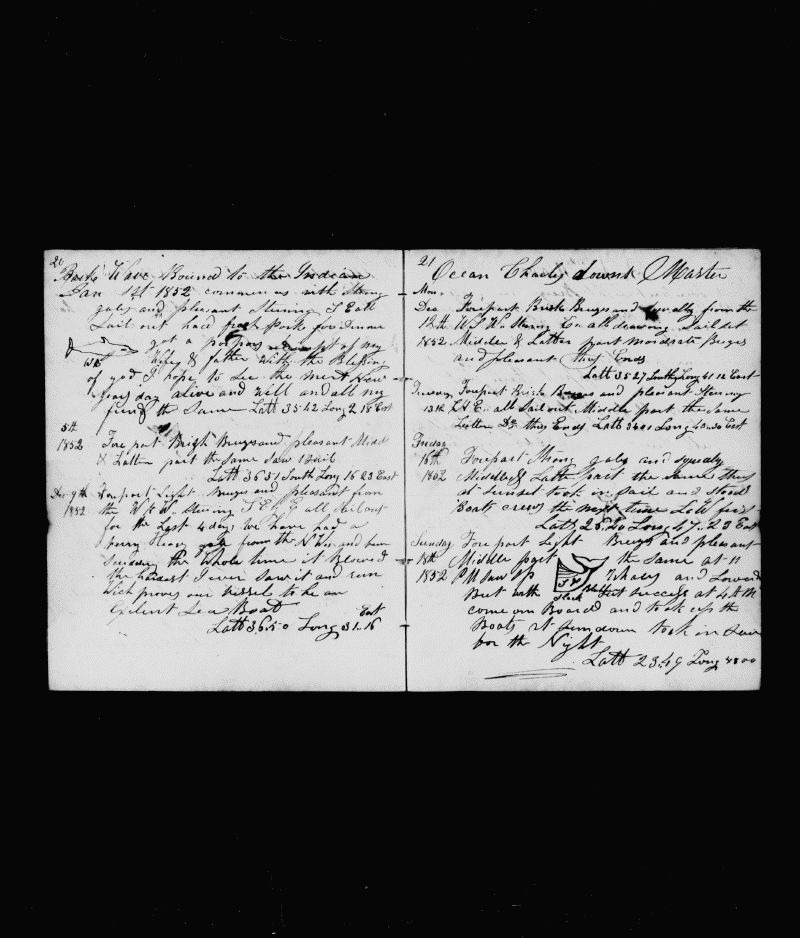 20
Bark Wave Bound to the Indean
Jan 1st 1852 commences with Strong
gales and pleasant Stering S East
Sail out had fresh Pork for Dinner
got a porpos
Wife & father With the Blessing
of god I hope to See the next New
years day alive and well and all my
friends the Same Latt 35-42 Long 2 18 East
5th
1852
Fore part Brigh Breezs and pleasant Midd
& Latter part the Same Saw 1 Sail
Latt 36 31 South Long 16 23 East
Dec 9th Forepart Light Breezes and pleasant from
1852 the W N W Stering S E E all Sail out
for the Last 4 days we have had a
very Heavy gale from the N West and been
Scuden the Whole time it Blowed
the hardest I ever Saw it and run
Wich proves our vessel to be an
Exelent Sea Boat
Latt 36-50 Long 31-16 East
21
Ocean Charles Master
Mon
Dec Forepart Brisk Breezes and Squally from the
12th W S W Stering En all drawing Sail Set
1852 Middle & Latter part moderate Breezes
and pleasant thus Ends
Latt 35 27 South Long 41 12 East
Tuesday Forepart Brisk Breezes and pleasant Stering
13th N E all Sail out Middle part the Same
Latter Do thus Ends Latt 34 01 Long 43-30 East
Friday
16th Forepart Strong gales and Squaly
1852 Middle & Latter part the Same thus
at Sunset took in Sail and Stood
Boats crews the next time
Latt 25-40 Long 47-23 East
Sunday Fore part Light Breezs and pleasant
18th Middle part the Same at 11
1852 P M Saw Sp Whales and Lowerd
But With Success at 4 P M
come on Board and took up the
Boats at Sundown took in Sail
for the Night
Latt 23-49 Long 48 00